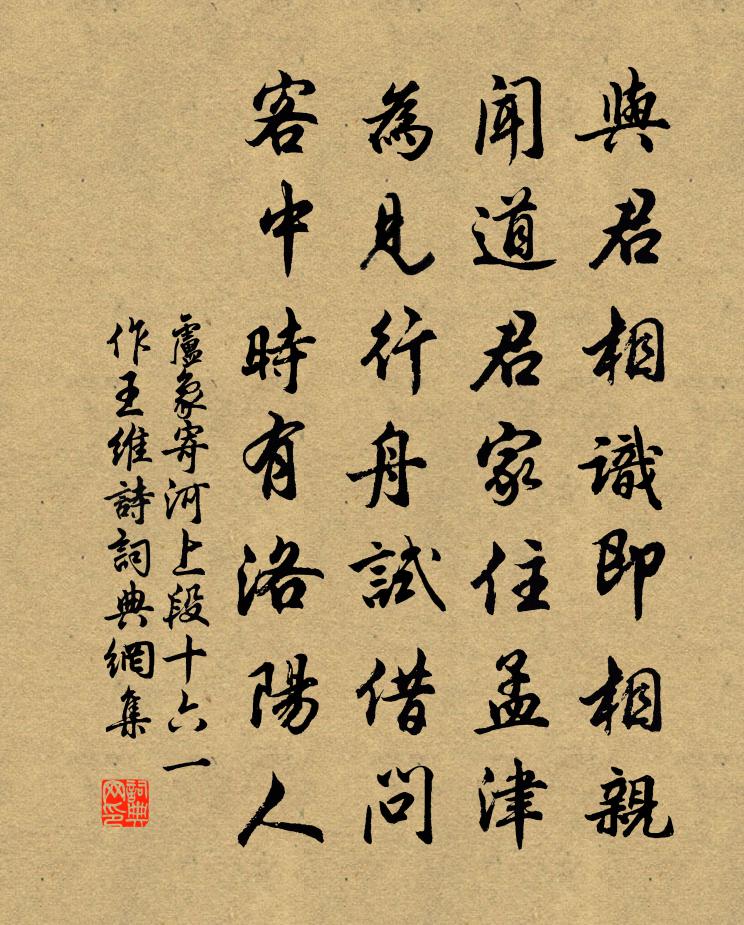 與君相識即相親
聞道君家住孟津
為見行舟試借問
客中時有洛陽人
盧象寄河上段十六一
作王維詩詞典網集
詞典网印